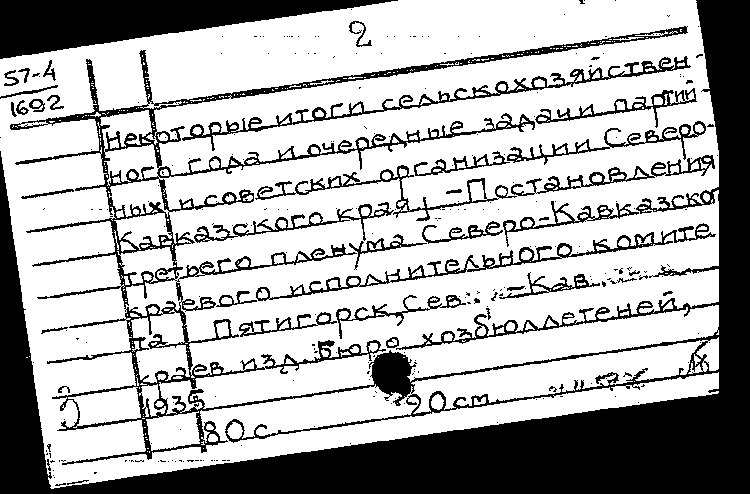 2
57-4
1692
Некоторые итоги сельскохозяйствен-
ного года и очередные задачи партий-
ных и советских организации Северо-
Кавказского края; - Постановления
третьего пленума Северо-Кавказско
краевого исполнительного комите
та Пятигорск, Сев. -Кав.
краев изд. Бюро хозбюллетеней,
1935
80 с. 20 см.